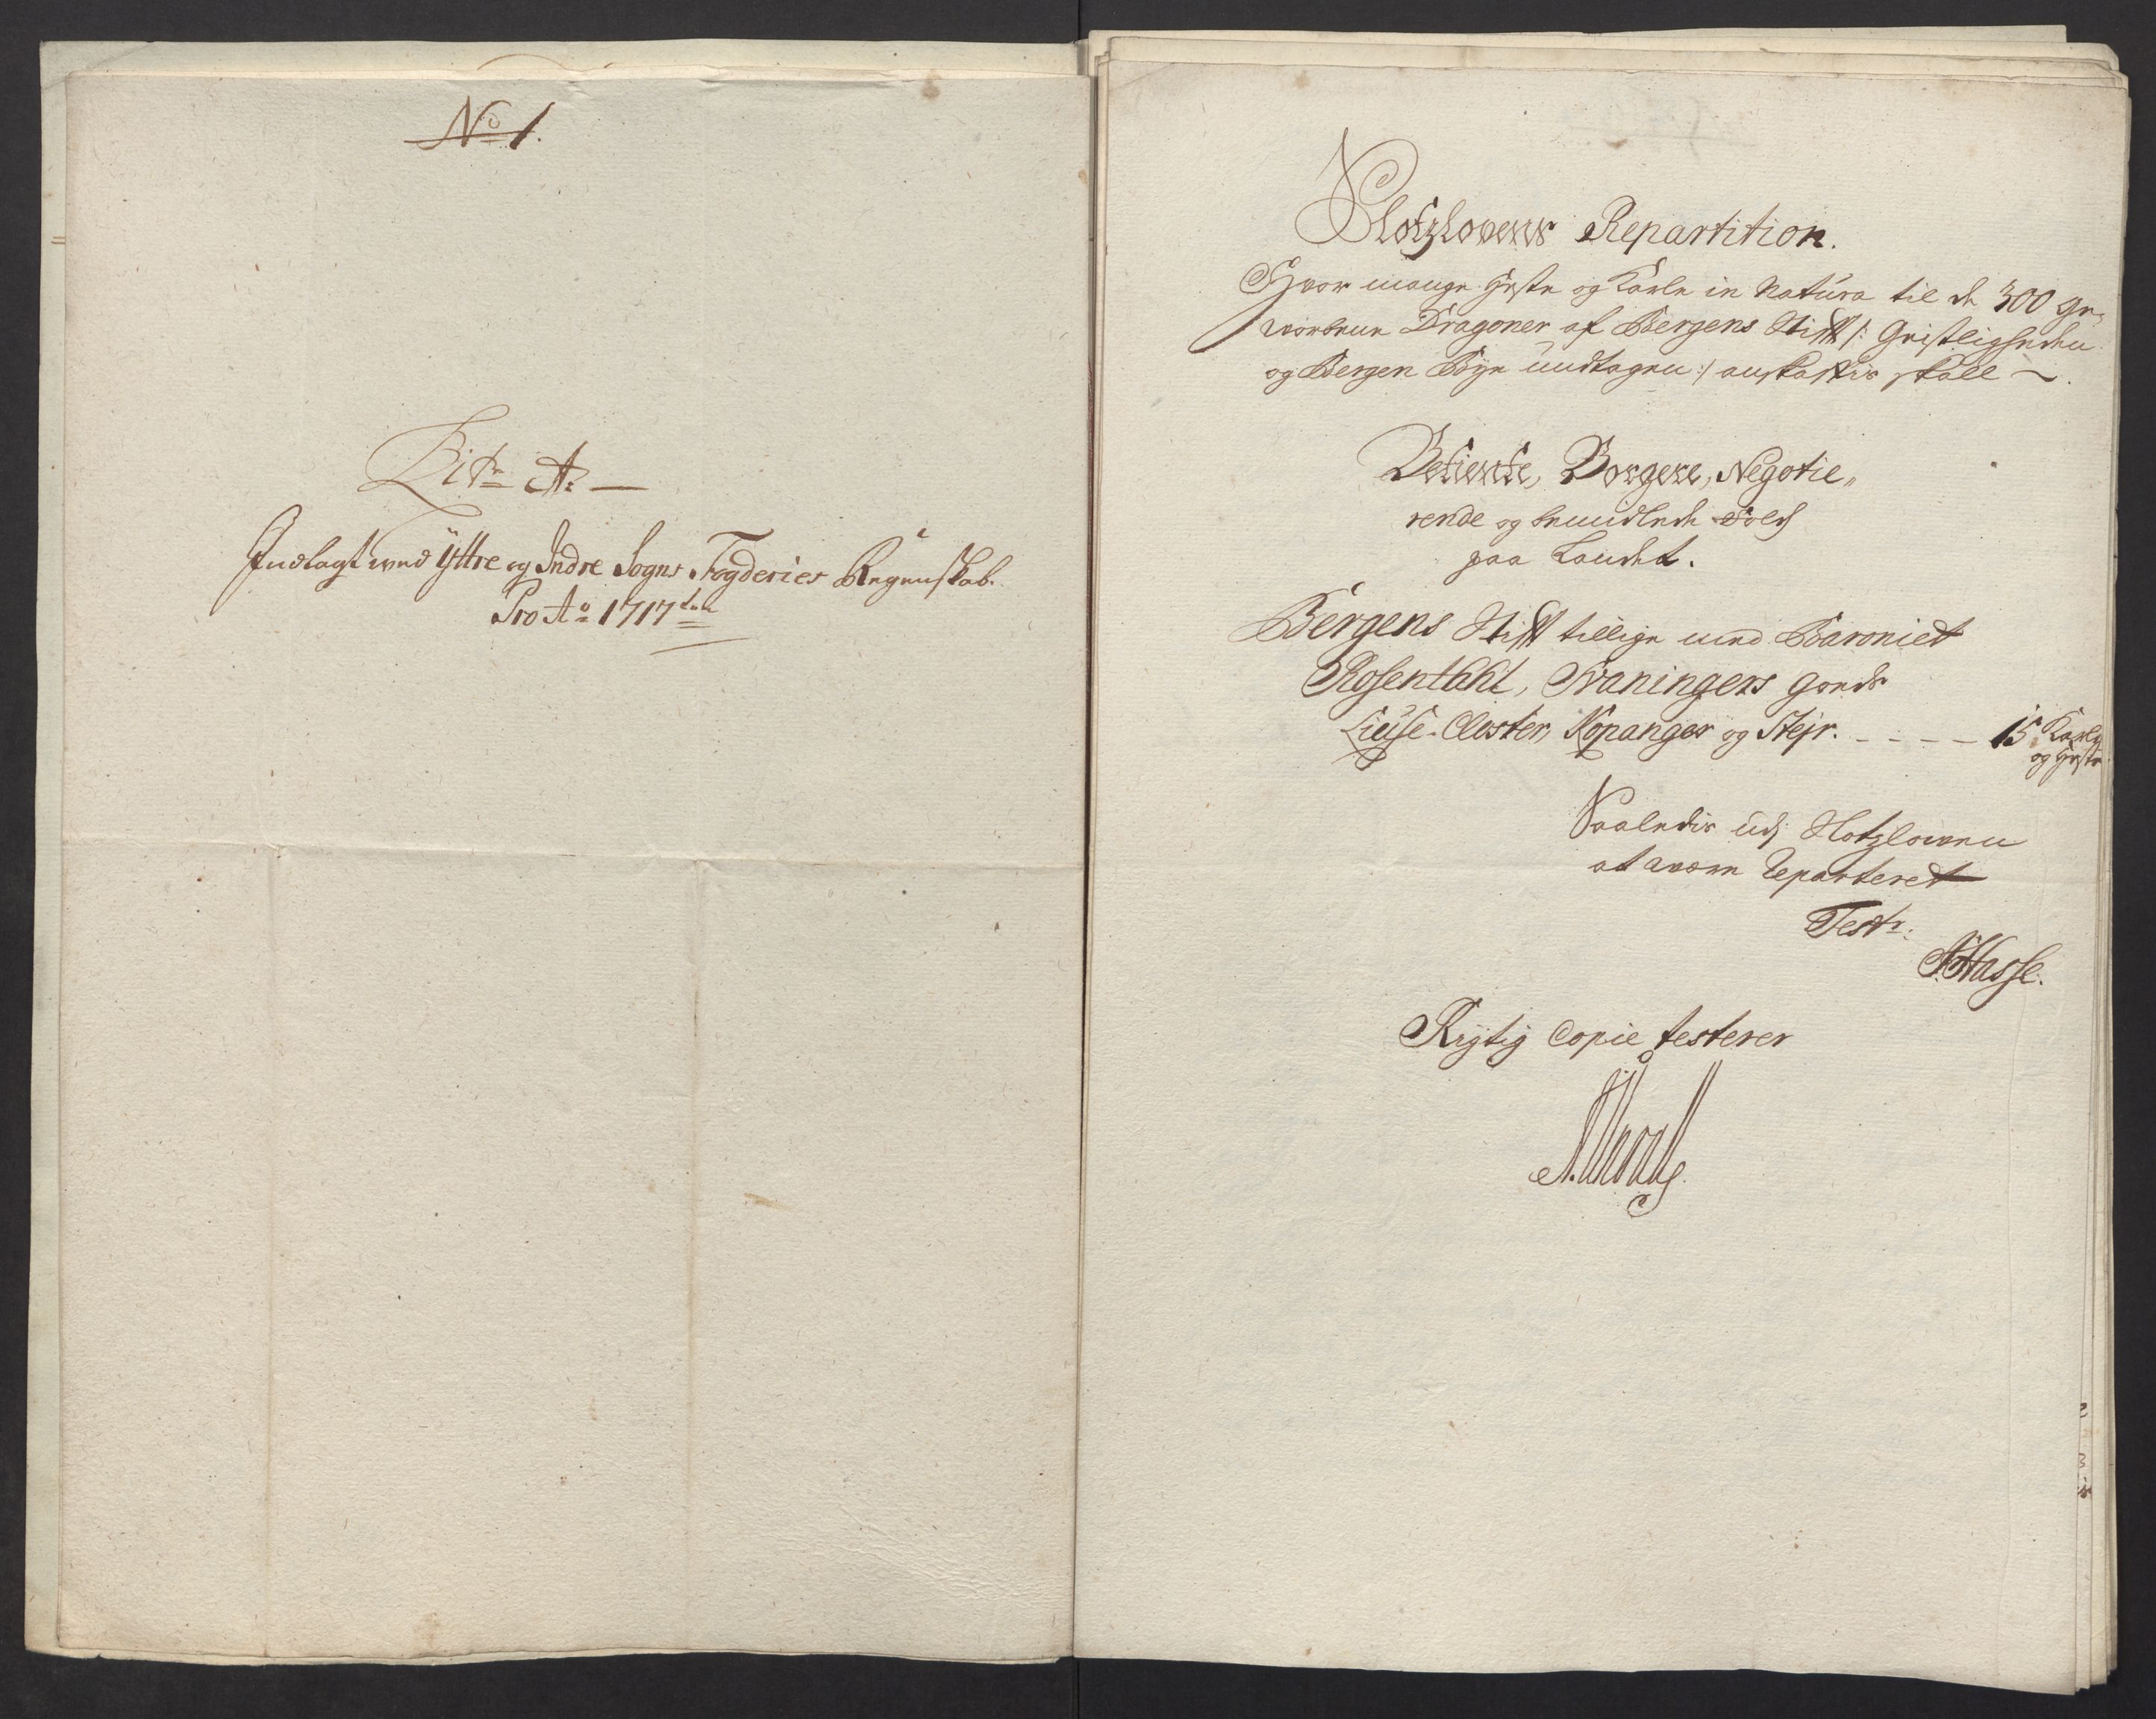 No 1.
Litr A:
Indlagt wed Yttre og Indre Sogns Fogderies Regenskab.
Pro Ao 1717den
Slotzlovens Repartition.
Hvor mange Heste og Karle in Natura til de 300 ge-
worbene Dragoner af Bergens Stift /: Geistligheden
og Bergen Bye undtagen :/ anskaffis skall
Betiente, Borgere, Negotie„
rende og bemidlede Folch
paa Landet.
Bergens Stift tillige med Baroniet
Rosentahl, Svaningers Gods
Liuse-Closter, Kopanger og Stejr. - - - - 15 Karle
og Heste
Saaledis udj Slotzlowen
at were Reparteret
Test:
Hasse.
Rigtig Copie testerer